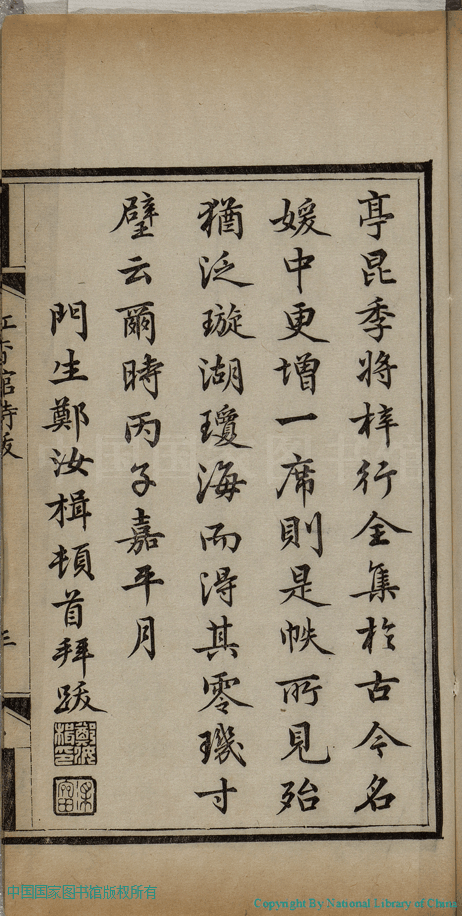 亭昆季將梓行全集於古今名
媛中更增一席則是帙所見殆
猶泛璇湖瓊海而得其零璣寸
璧云爾時丙子嘉平月
門生鄭汝楫頓首拜跋
三
中国国家图书馆版权所有
Copyright By National Library of China